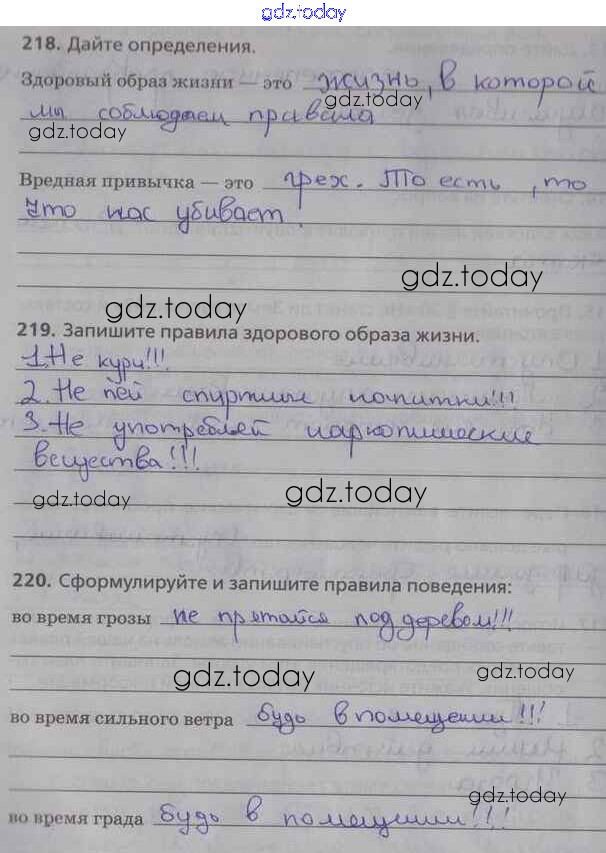 gdz.today
218. Дайте определения.
Здоровый образ жизни — это жизнь, в которой
gdz.today
мы соблюдаем правила
gdz.today
Вредная привычка — это грех. То есть, то
что нас убивает.
gdz.today
gdz.today
219. Запишите правила здорового образа жизни.
1. Не кури!!!
2. Не пей спиртные напитки!!!
3. Не употребляй наркотические
вещества!!!
gdz.today
gdz.today
220. Сформулируйте и запишите правила поведения:
во время грозы не прятайся под деревом!!!
gdz.today
gdz.today
во время сильного ветра будь в помещении!!!
gdz.today
во время града будь в помещении!!!
gdz.today